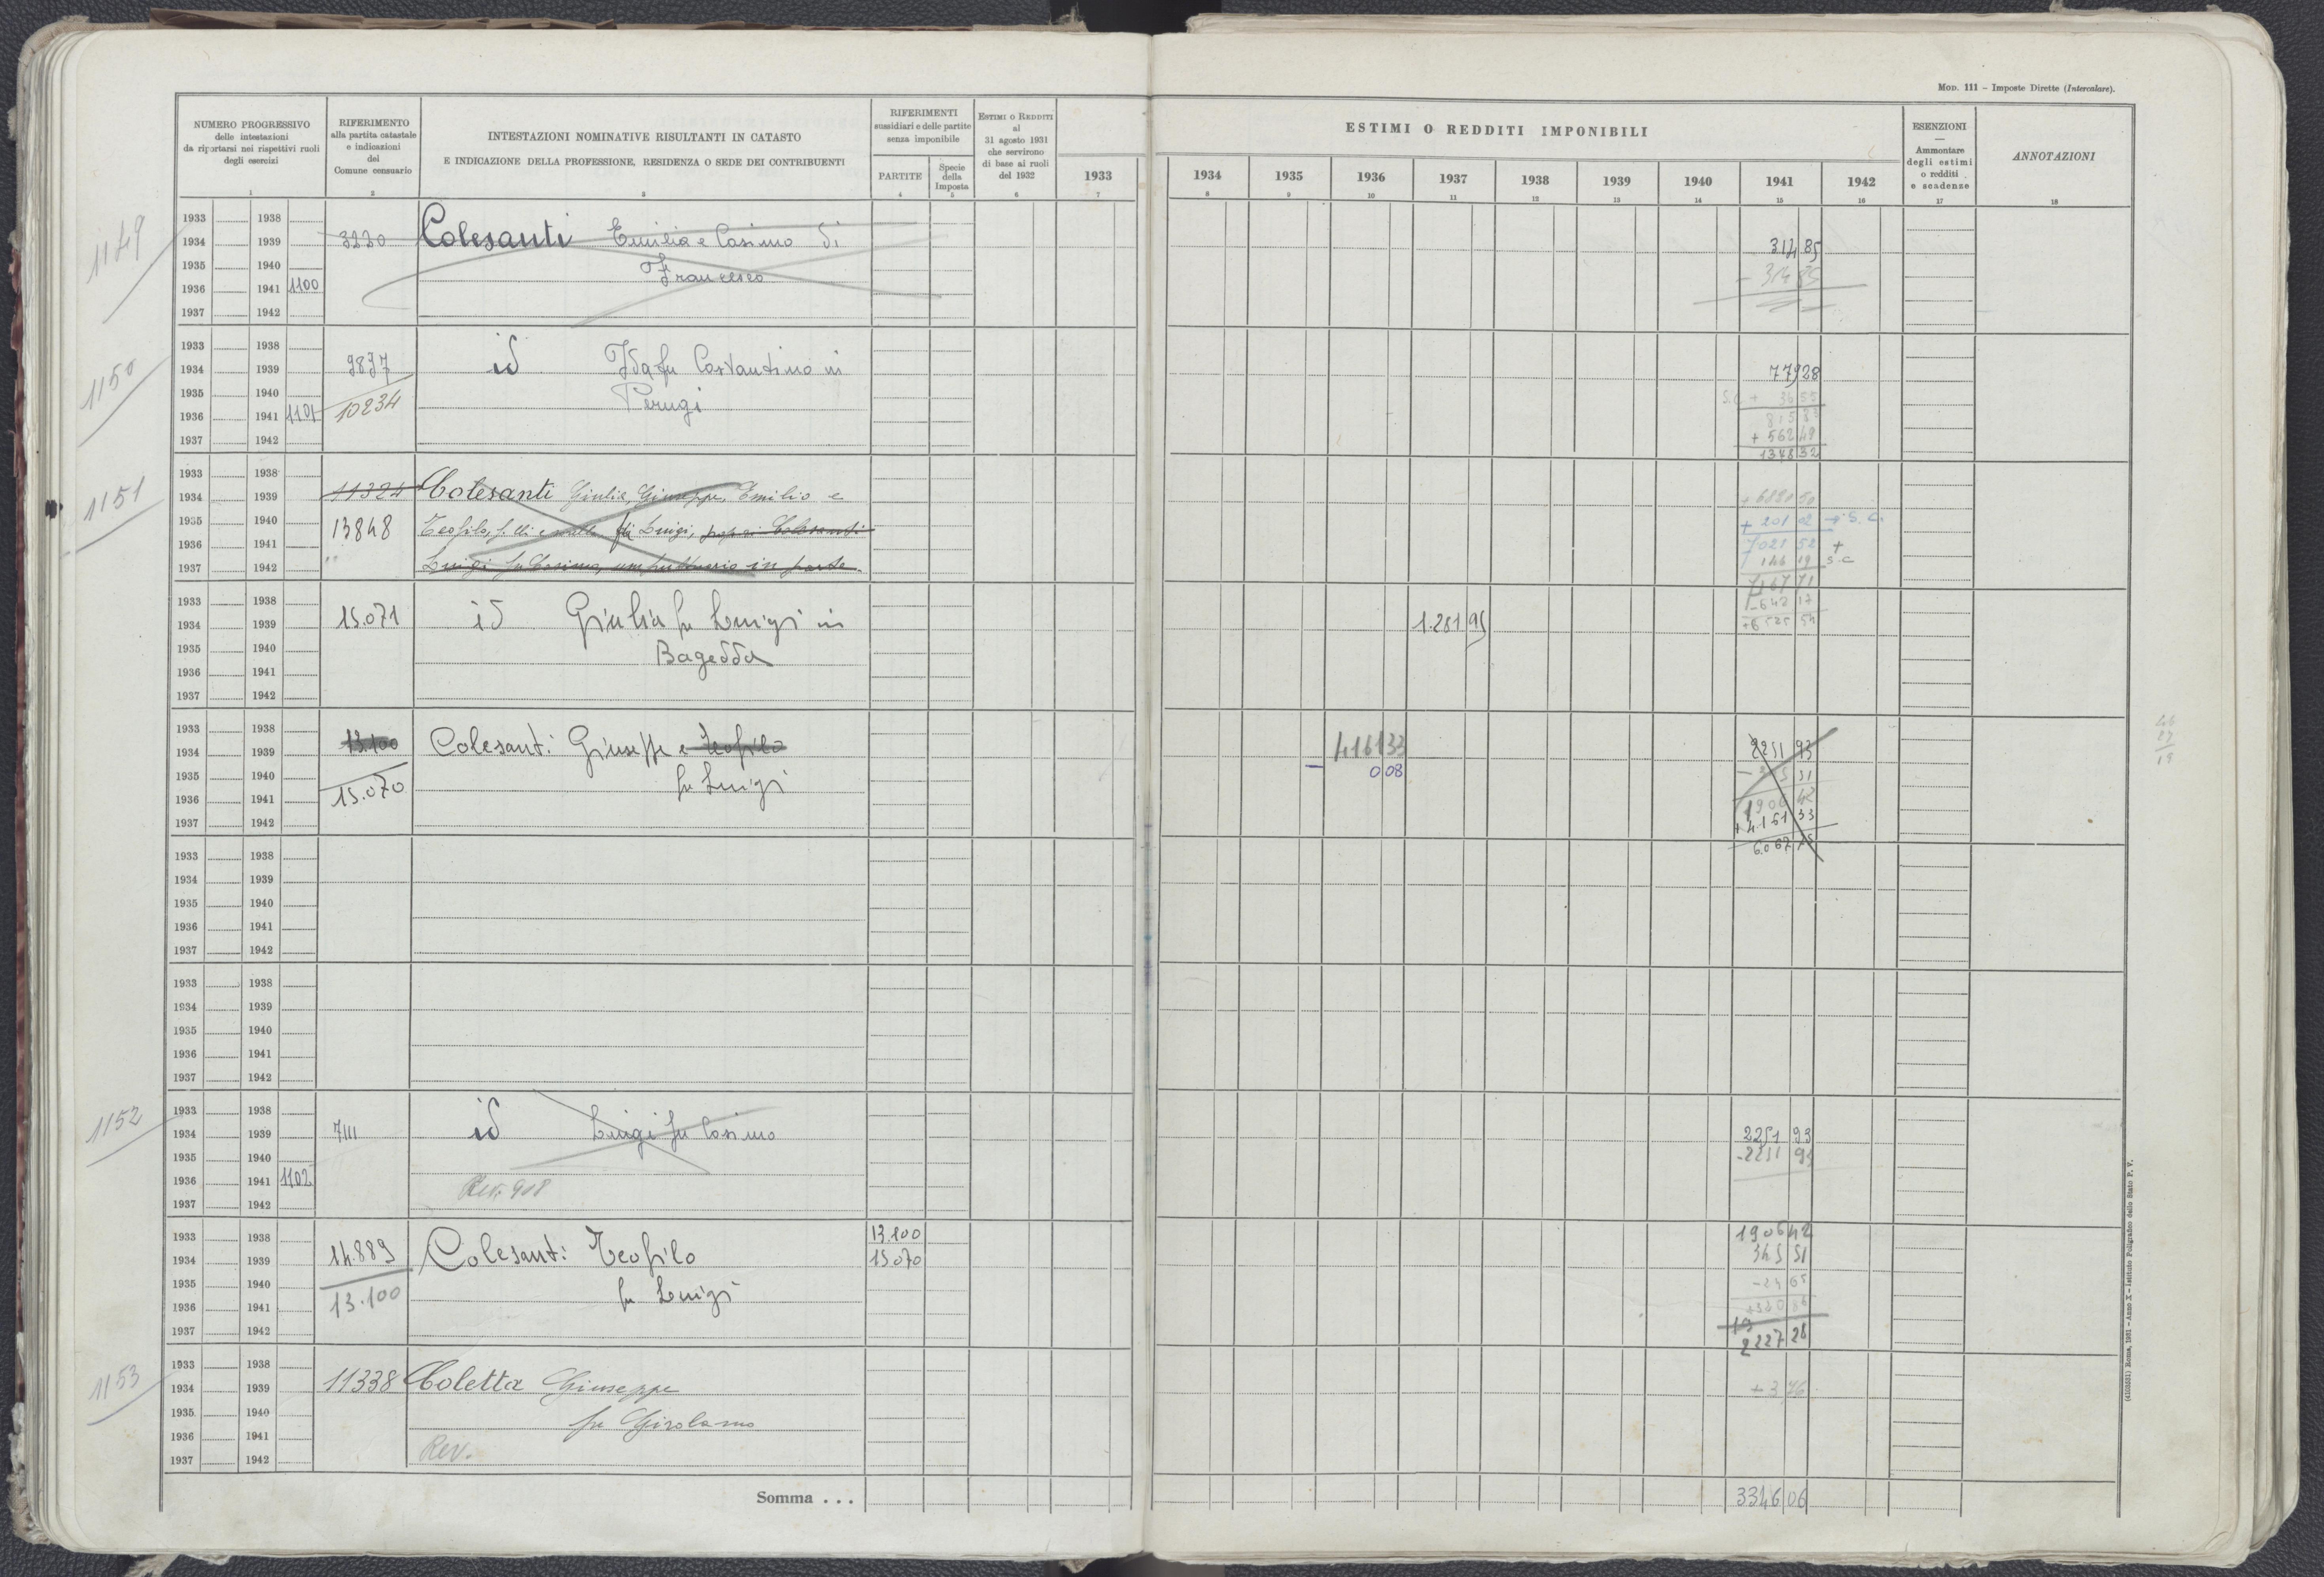 MOD. 111 – Imposte Dirette (Intercalare).
NUMERO PROGRESSIVO
delle intestazioni
da riportarsi nei rispettivi ruoli
degli esercizi
1
RIFERIMENTO
alla partita catastale
e indicazioni
del
Comune censuario
2
INTESTAZIONI NOMINATIVE RISULTANTI IN CATASTO
E INDICAZIONE DELLA PROFESSIONE, RESIDENZA O SEDE DEI CONTRIBUENTI
3
RIFERIMENTI
sussidiari e delle partite
senza imponibile
PARTITE
4
Specie
della
Imposta
5
ESTIMI O REDDITI
al
31 agosto 1931
che servirono
di base ai ruoli
del 1932
6
ESTIMI O REDDITI IMPONIBILI
1933 1934 1935 1936 1937 1938 1939 1940 1941 1942
7 8 9 10 11 12 13 14 15 16
ESENZIONI
—
Ammontare
degli estimi
o redditi
e scadenze
17
ANNOTAZIONI
18
1149
1933 1938
1934 1939 3230 Colesanti Emilia e Cosimo di 314 85
1935 1940 Francesco - 314 85
1936 1941 1100
1937 1942
1150
1933 1938
1934 1939 9837 id Ida fu Costantino in 779 28
1935 1940 Perugi S.C + 36 55
1936 1941 1101 10234 815 83
1937 1942 + 562 49
1378 32
1151
1933 1938
1934 1939 11324 Colesanti Giulia, Giuseppe, Emilio e
1935 1940 13848 Teofilo, f.lli e sorella fu Luigi, Colesanti + 201 02 → S.C.
1936 1941 Luigi fu Cosimo, usufruttuario in parte 7021 52 +
1937 1942 146 19 S.C
7167 71
- 642 17
+ 6525 54
1933 1938
1934 1939 15.071 id Giulia fu Luigi in 1.281 95
1935 1940 Bagedda
1936 1941
1937 1942
1933 1938
1934 1939 13.100 Colesanti Giuseppe e Teofilo 4161 33 2251 93
1935 1940 15.070 fu Luigi – 0 08
1936 1941 1906 42
1937 1942 + 4.161 33
46
27
19
1933 1938
1934 1939
1935 1940
1936 1941
1937 1942
1933 1938
1934 1939
1935 1940
1936 1941
1937 1942
1152
1933 1938
1934 1939 7111 id Luigi fu Cosimo 2251 93
1935 1940 - 2251 93
1936 1941 1102 Rev. 908
1937 1942
1933 1938 13.100 1906 42
1934 1939 14.889 Colesanti Teofilo 15.070 345 51
1935 1940 13.100 fu Luigi - 24 65
1936 1941 + 320 86
1937 1942 2227 28
1153
1933 1938
1934 1939 11338 Coletta Giuseppe + 3 76
1935 1940 fu Girolamo
1936 1941 Rev.
1937 1942
Somma . . . 3346 06
(4103631) Roma, 1931 – Anno X – Istituto Poligrafico dello Stato P. V.